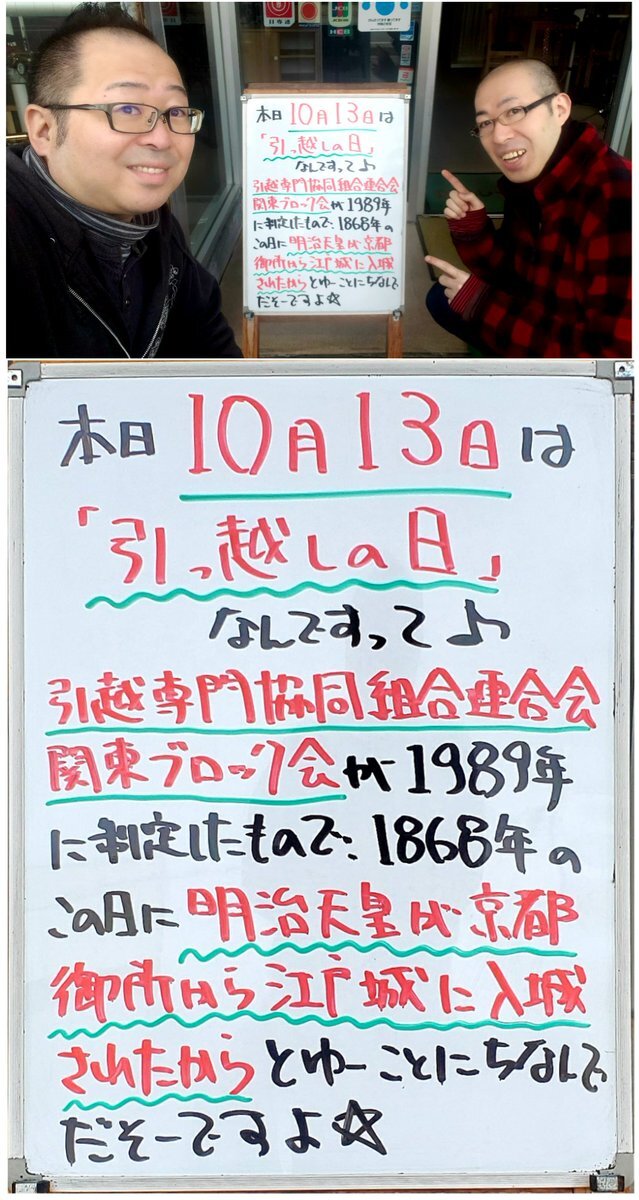 JCB
本日10月13日は
「引っ越しの日」
なんですって♪
引越専門協同組合連合会
関東ブロック会が1989年
に制定したもので、1868年の
この日に明治天皇が京都
御所から江戸城に入城
されたからとゆーことにちなんで
だそーですよ☆
本日10月13日は
「引っ越しの日」
なんですって♪
引越専門協同組合連合会
関東ブロック会が1989年
に制定したもので、1868年の
この日に明治天皇が京都
御所から江戸城に入城
されたからとゆーことにちなんで
だそーですよ☆